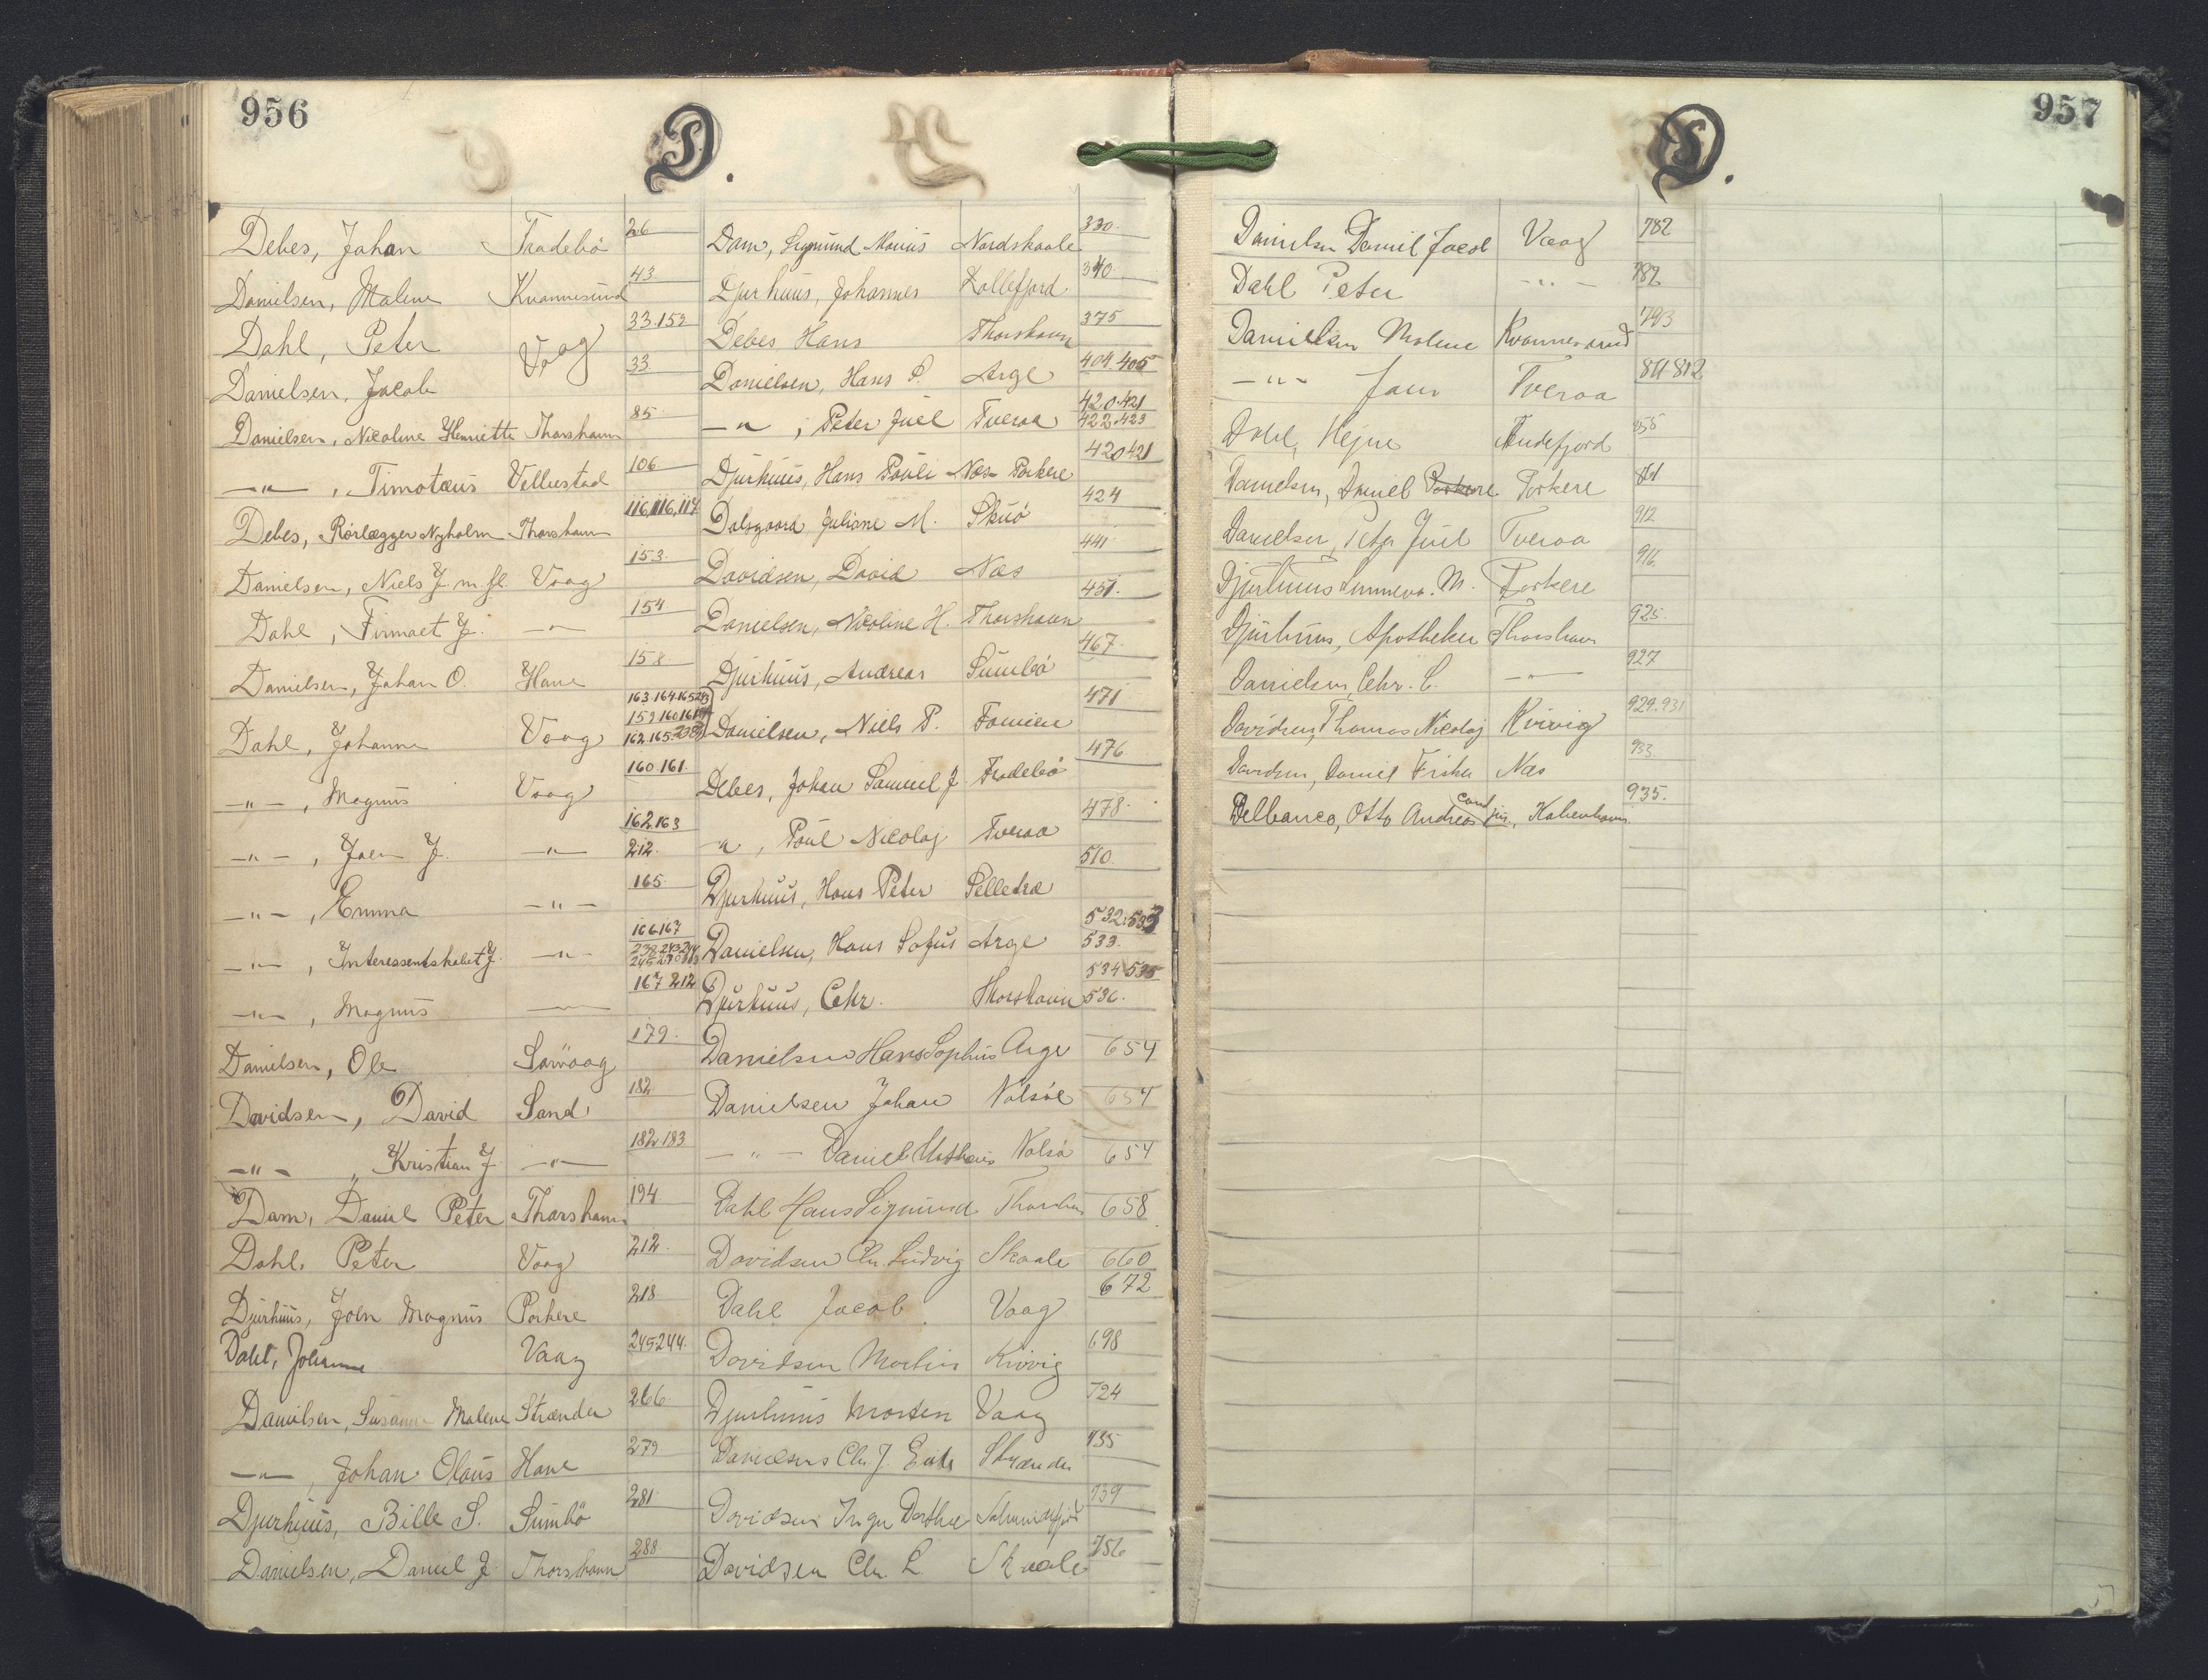 956
D.
Debes, Johan Tradebö 26
Danielsen, Malene Kvannesund 43.
Dahl, Peter Vaag 33.152
Danielsen, Jacob 33.
Danielsen, Nicoline Henriette Thorshavn 85.
—"— , Timotæus Velbestad 106.
Debes, Rörlægger Nyholm Thorshavn 116,116,117
Danielsen, Niels J. m. fl. Vaag 153.
Dahl, J. —"— 154
Danielsen, Johan O. Hove 158
Dahl, Johanne Vaag
—"— , Magnus Vaag 160.161.
—"— , Joen J. —"— 162.163 212.
—"— , Emma —"— 165.
—"— , Interessentskabet J. —"— 166.167
—"— , Magnus —"— 167 212
Danielsen, Ole Sørvaag 179.
Davidsen, David Sand 182
—"— , Kristian J. —"— 182.183
Dam, Daniel Peter Thorshavn 194.
Dahl, Peter Vaag 212.
Djurhuus, Joen Magnus Porkere 218.
Dahl, Johanne Vaag 245.244.
Danielsen, Susanne Malene Strænder 266.
—"— , Johan Olaus Hove 279
Djurhuus, Bille S. Sumbö 281.
Danielsen, Daniel J. Thorshavn 288
Dam, Sigmund Marius Nordskaale 330.
Djurhuus, Johannes Kollefjord 340.
Debes Hans Thorshavn 375
Danielsen, Hans P. Arge 404.405
—"— , Peter Juel Tveraa 420.421 422.423
Djurhuus, Hans Pauli Næs Porkere 420421
Dalsgaard, Juliane M. Skuö 424
Davidsen, David Næs 441.
Danielsen, Nicoline H. Thorshavn 451.
Djurhuus, Andreas Sumbö 467.
Danielsen, Niels P. Famien 471
Debes, Johan Samuel J. Tradebö 476
" , Poul Nicolaj Tveraa 478.
Djurhuus, Hans Peter Selletræ 510.
Danielsen, Hans Sofus Arge 532.533 533.
Djurhuus, Chr. Thorshavn 534 535 536.
Danielsen Hans Sophus Arge 654
Danielsen Johan Nolsöe 654
—"— Daniel Nolsö 654
Dahl Hans Sigmund Thorshavn 658
Davidsen Chr. Ludvig Skaale 660
Dahl Jacob Vaag 672
Davidsen Morten Kvivig 698
Djurhuus Morten Vaag 724
Danielsens Chr. J. Enke Strænder 735
Davidsen Inger Dorthea 739
Davidsen Chr. L. Skaale 756
957
D.
Danielsen Daniel Jacob Vaag 782
Dahl Peter —"— 782
Danielsen Malene Kvannesund 793
—"— Joen Tveraa 811-812
Dahl, Hejne Andefjord 855
Danielsen, Daniel Porkere Porkere 861
Danielsen, Peter Juel Tveraa 912
Djurhuus Sunneva. M. Porkere 916.
Djurhuus, Apotheker Thorshavn 925.
Danielsen, Chr. C. —"— 927
Davidsen, Thomas Nicolaj Kvivig 929.931
Davidsen, Daniel Fisker Næs 933
Delbanco, Otto Andreas cand jur., Kobenhavn 935.